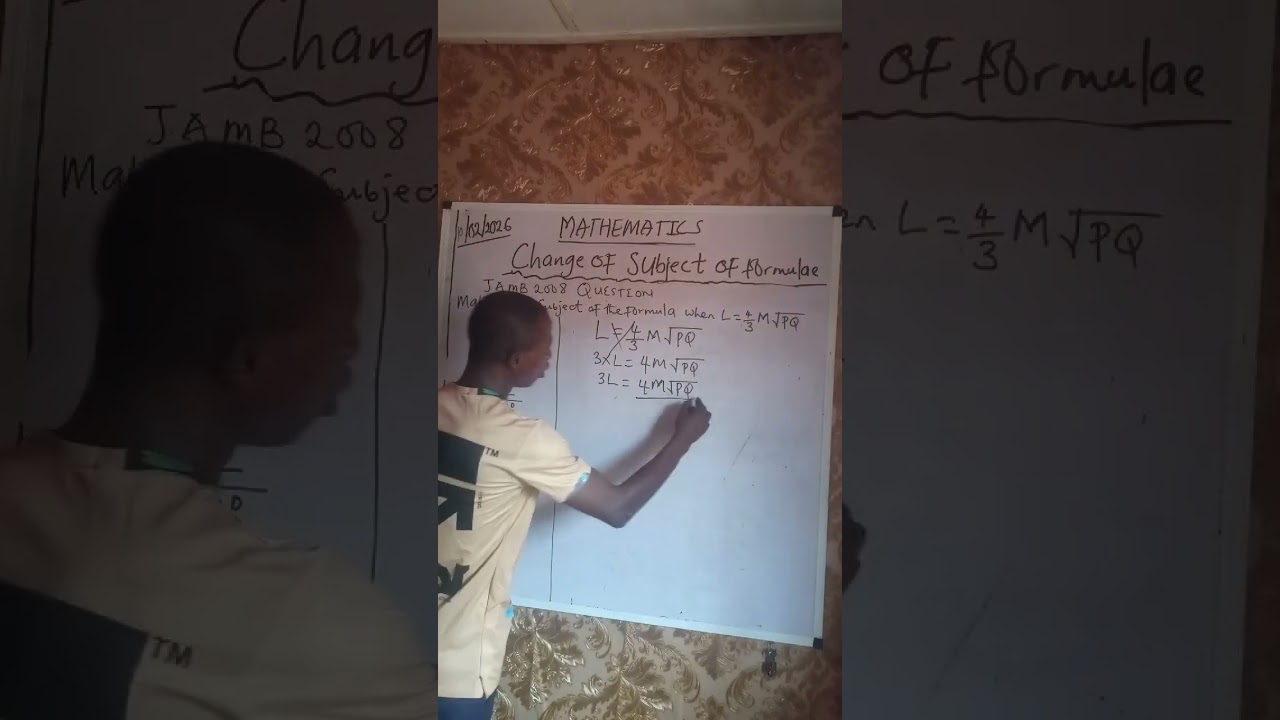 10/02/2026
MATHEMATICS
Change OF Subject of formulae
JAMB 2008 QUESTION
Subject of the formula when L = 4/3 M√PQ
L = 4/3 M√PQ
3×L = 4M√PQ
3L = 4M√PQ
TM